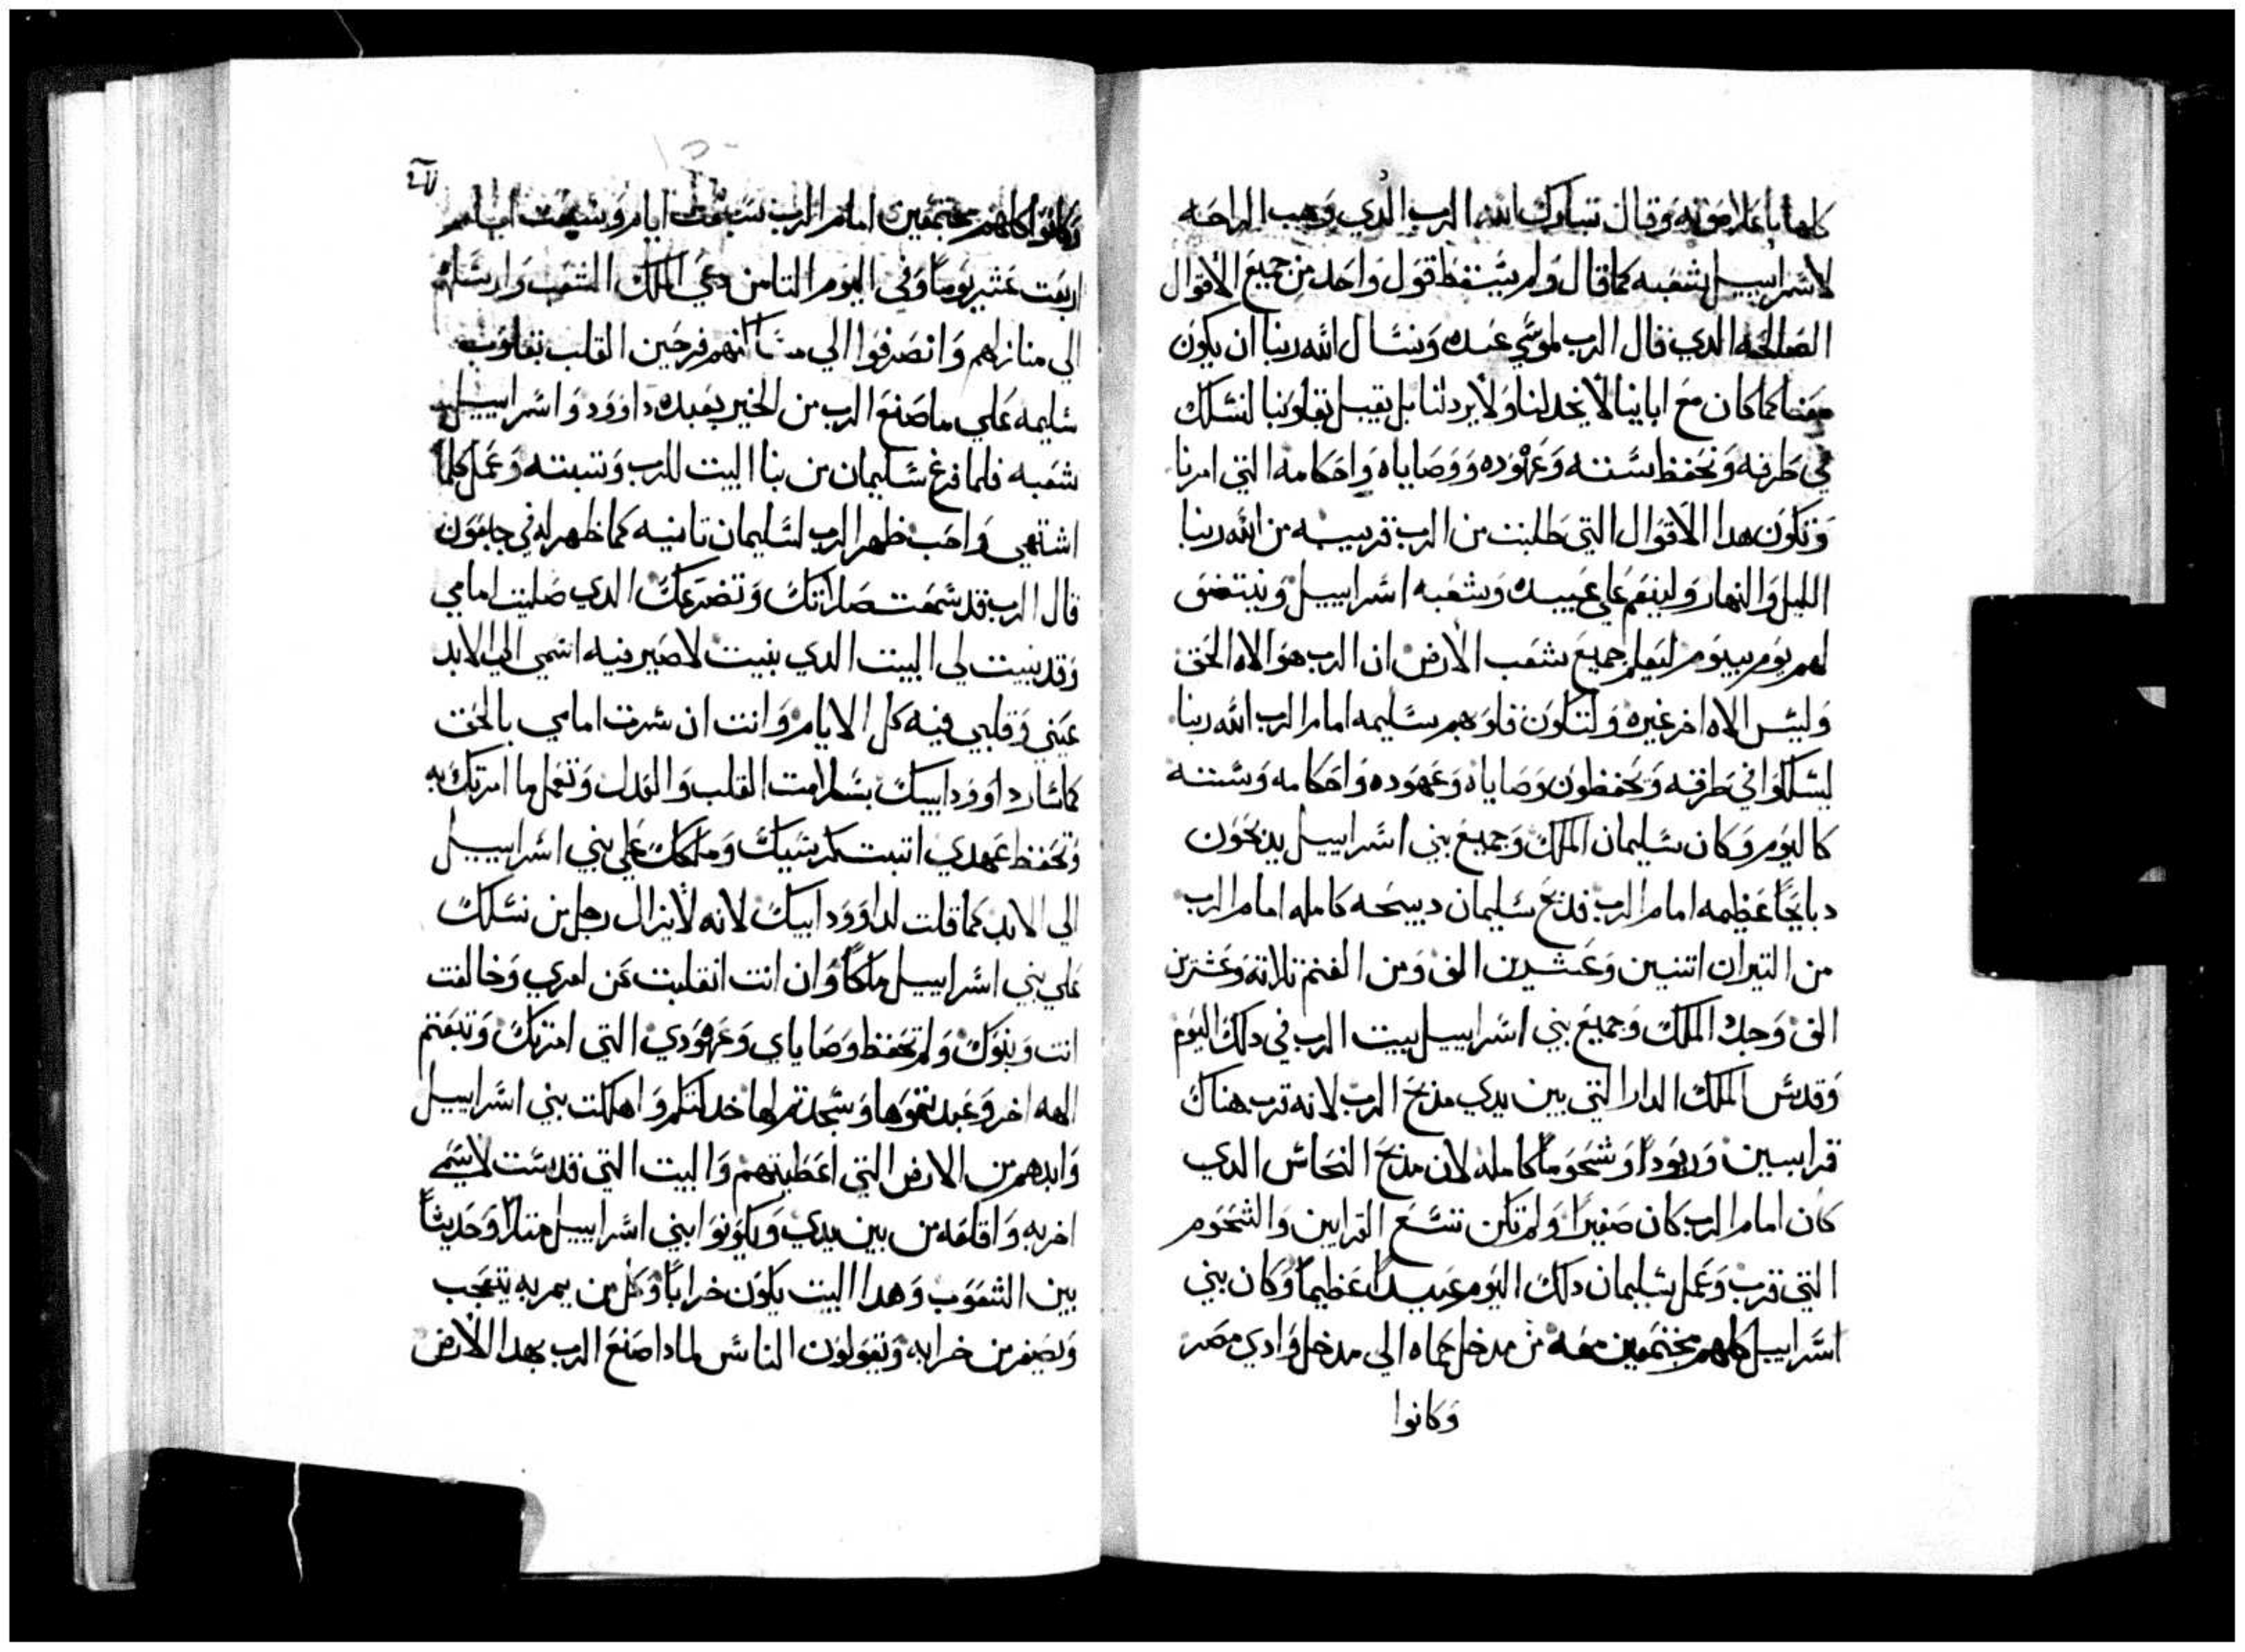 كلها باعلا صوته وقال تبارك الله الرب الدي وهب الراحه
لاسراييل شعبه كما قال ولم يسقط قول واحد من جميع الاقوال
الصالحه الدي قال الرب لموسي عبده ونسال الله ربنا ان يكون
معنا كما كان مع اباينا لا يخدلنا ولا يردلنا بل يقبل بقلوبنا لنسلك
في طرقه ونحفظ سننه وعهوده ووصاياه واحكامه التي امرنا
وتكون هدا الاقوال التي طلبت من الرب قريبه من الله ربنا
الليل والنهار ولينقم علي عبيده وشعبه اسراييل وينتضف
لهم يوم بيوم ليعلم جميع شعب الارض ان الرب هو الاه الحق
وليس الاه اخر غيره ولتكون قلوبهم سليمه امام الرب الله ربنا
ليسلكوا في طرقه ويحفظون وصاياه وعهوده واحكامه وسننه
كاليوم وكان سليمان الملك وجميع بني اسراييل يدبحون
دبايحا عظيمه امام الرب فدبح سليمان دبيحه كامله امام الرب
من التيران اتنين وعشرين الف ومن الغنم تلاته وعشرين
الف وجدد الملك وجميع بني اسراييل بيت الرب في دلك اليوم
وقدس الملك الدار التي بين يدي مدبح الرب لانه قرب هناك
قرابين وربودا وشحوما كامله لان مدبح النحاس الدي
كان امام الرب كان صغيرا ولم تكن تسع القرابين والشحوم
التي قرب وعمل سليمان دلك اليوم عيدا عظيما وكان بني
اسراييل كلهم مجتمعين معه من مدخل حماه الي مدخل وادي مصر
وكانوا
وكانوا كلهم مجتمعين امام الرب سبعت ايام وسبعت ايام
اربعت عشر يوما وفي اليوم التامن دعي الملك الشعب وارسلهم
الي منازلهم وانصرفوا الي فرحين القلب بقلوب
سليمه علي ما صنع الرب من الخير بعبده داوود واسراييل
شعبه فلما فرغ سليمان من بنا البيت للرب وتبته وعمل كلما
اشتهي واحب ظهر الرب لسليمان تانيه كما ظهر له في جابعون
قال الرب قد سمعت صلاتك وتضرعك الدي صليت امامي
وقد بنيت لي البيت الدي بنيت لاصير فيه اسمي الي الابد
عيني وقلبي فيه كل الايام وانت ان سرت امامي بالحق
كما سار داوود ابيك بسلامت القلب والعدل وتعمل ما امرتك به
وتحفظ عهدي اتبت كرسيك وملكك علي بني اسراييل
الي الابد كما قلت لداوود ابيك لانه لا يزال رجل من نسلك
علي بني اسراييل ملكا وان انت انقلبت عن امري وخالفت
انت وبنوك ولم تحفظ وصاياي وعهودي التي امرتك وتبعتم
الهه اخر وعبدتموها وسجدتم لها خدلتكم واهلكت بني اسراييل
وابدهم من الارض التي اعطيتهم والبيت التي قدست لاسمي
اخربه واقلعه من بين يدي ويكونوا بني اسراييل متلا وحديثا
بين الشعوب وهدا البيت يكون خرابا وكل من يمر به يتعجب
ويصفر من خرابه ويقولون الناس لمادا صنع الرب بهدا الارض